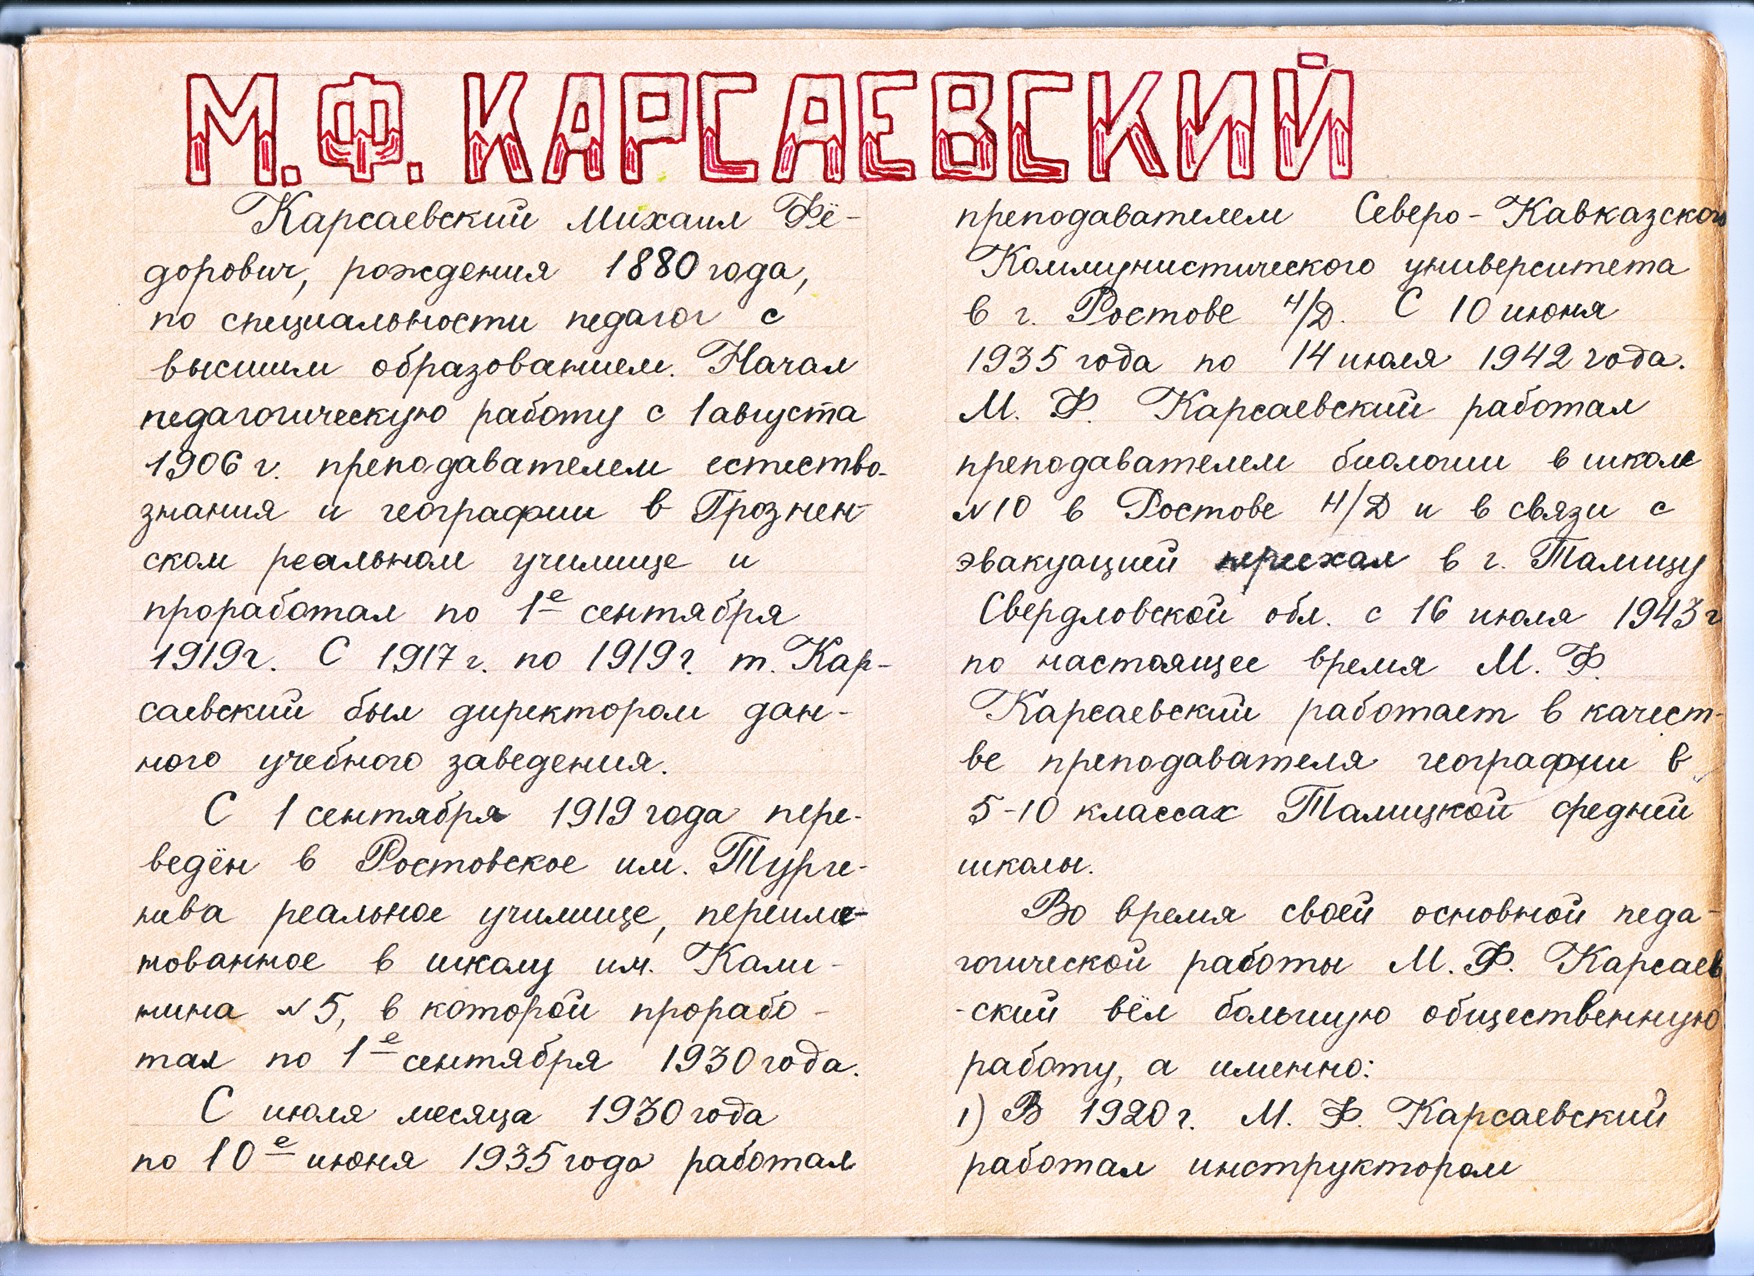 М.Ф. КАРСАЕВСКИЙ
Карсаевский Михаил Фё-
дорович, рождения 1880 года,
по специальности педагог с
высшим образованием. Начал
педагогическую работу с 1 августа
1906 г. преподавателем естество-
знания и географии в Грознен-
ском реальном училище и
проработал по 1е сентября
1919г. С 1917 г. по 1919 г. т. Кар-
саевский был директором дан-
ного учебного заведения.
С 1 сентября 1919 года пере-
ведён в Ростовское им. Турге-
нева реальное училище, переиме-
нованное в школу им. Кали-
нина №5, в которой прорабо-
тал по 1е сентября 1930 года.
С июля месяца 1930 года
по 10е июня 1935 года работал
преподавателем Северо-Кавказского
Коммунистического университета
в г. Ростове н/Д. С 10 июня
1935 года по 14 июля 1942 года.
М. Ф. Карсаевский работал
преподавателем биологии в школе
№10 в Ростове н/Д и в связи с
эвакуацией переехал в г. Талицу
Свердловской обл. с 16 июля 1943 г
по настоящее время М. Ф.
Карсаевский работает в качест-
ве преподавателя географии в
5-10 классах Талицкой средней
школы.
Во время своей основной педа-
гогической работы М. Ф. Карсаев
-ский вёл большую общественную
работу, а именно:
1) В 1920 г. М. Ф. Карсаевский
работал инструктором